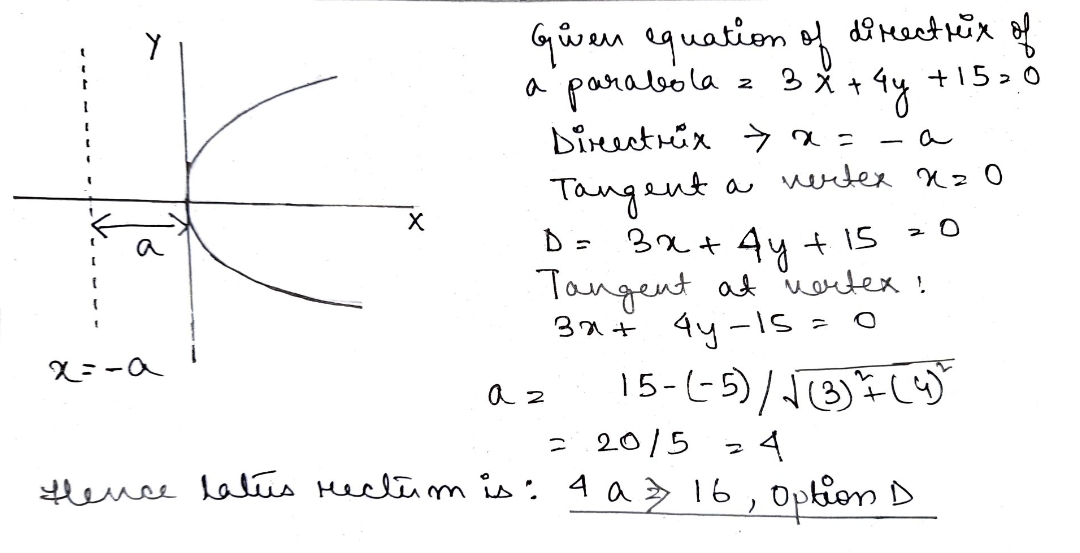 Y
X
a
x = -a
Given equation of directrix of
a parabola = 3x + 4y + 15 = 0
Directrix → x = - a
Tangent a vertex x = 0
D = 3x + 4y + 15 = 0
Tangent at vertex :
3x + 4y - 15 = 0
a = 15-(-5) / √(3)² + (4)²
= 20/5 = 4
Hence latus rectum is : 4 a ⇒ 16 , Option D